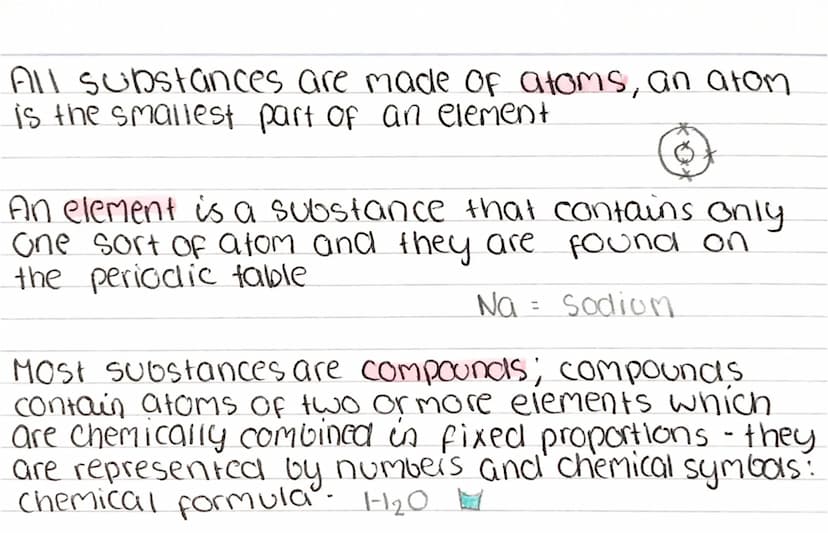 All substances are made of atoms, an atom
is the smallest part of an element
An element is a substance that contains only
one sort of atom and they are found on
the periodic table
Na = Sodium
Most substances are compounds; compounds
contain atoms of two or more elements which
are chemically combined in fixed proportions - they
are represented by numbers and chemical symbols:
chemical formula. H₂O